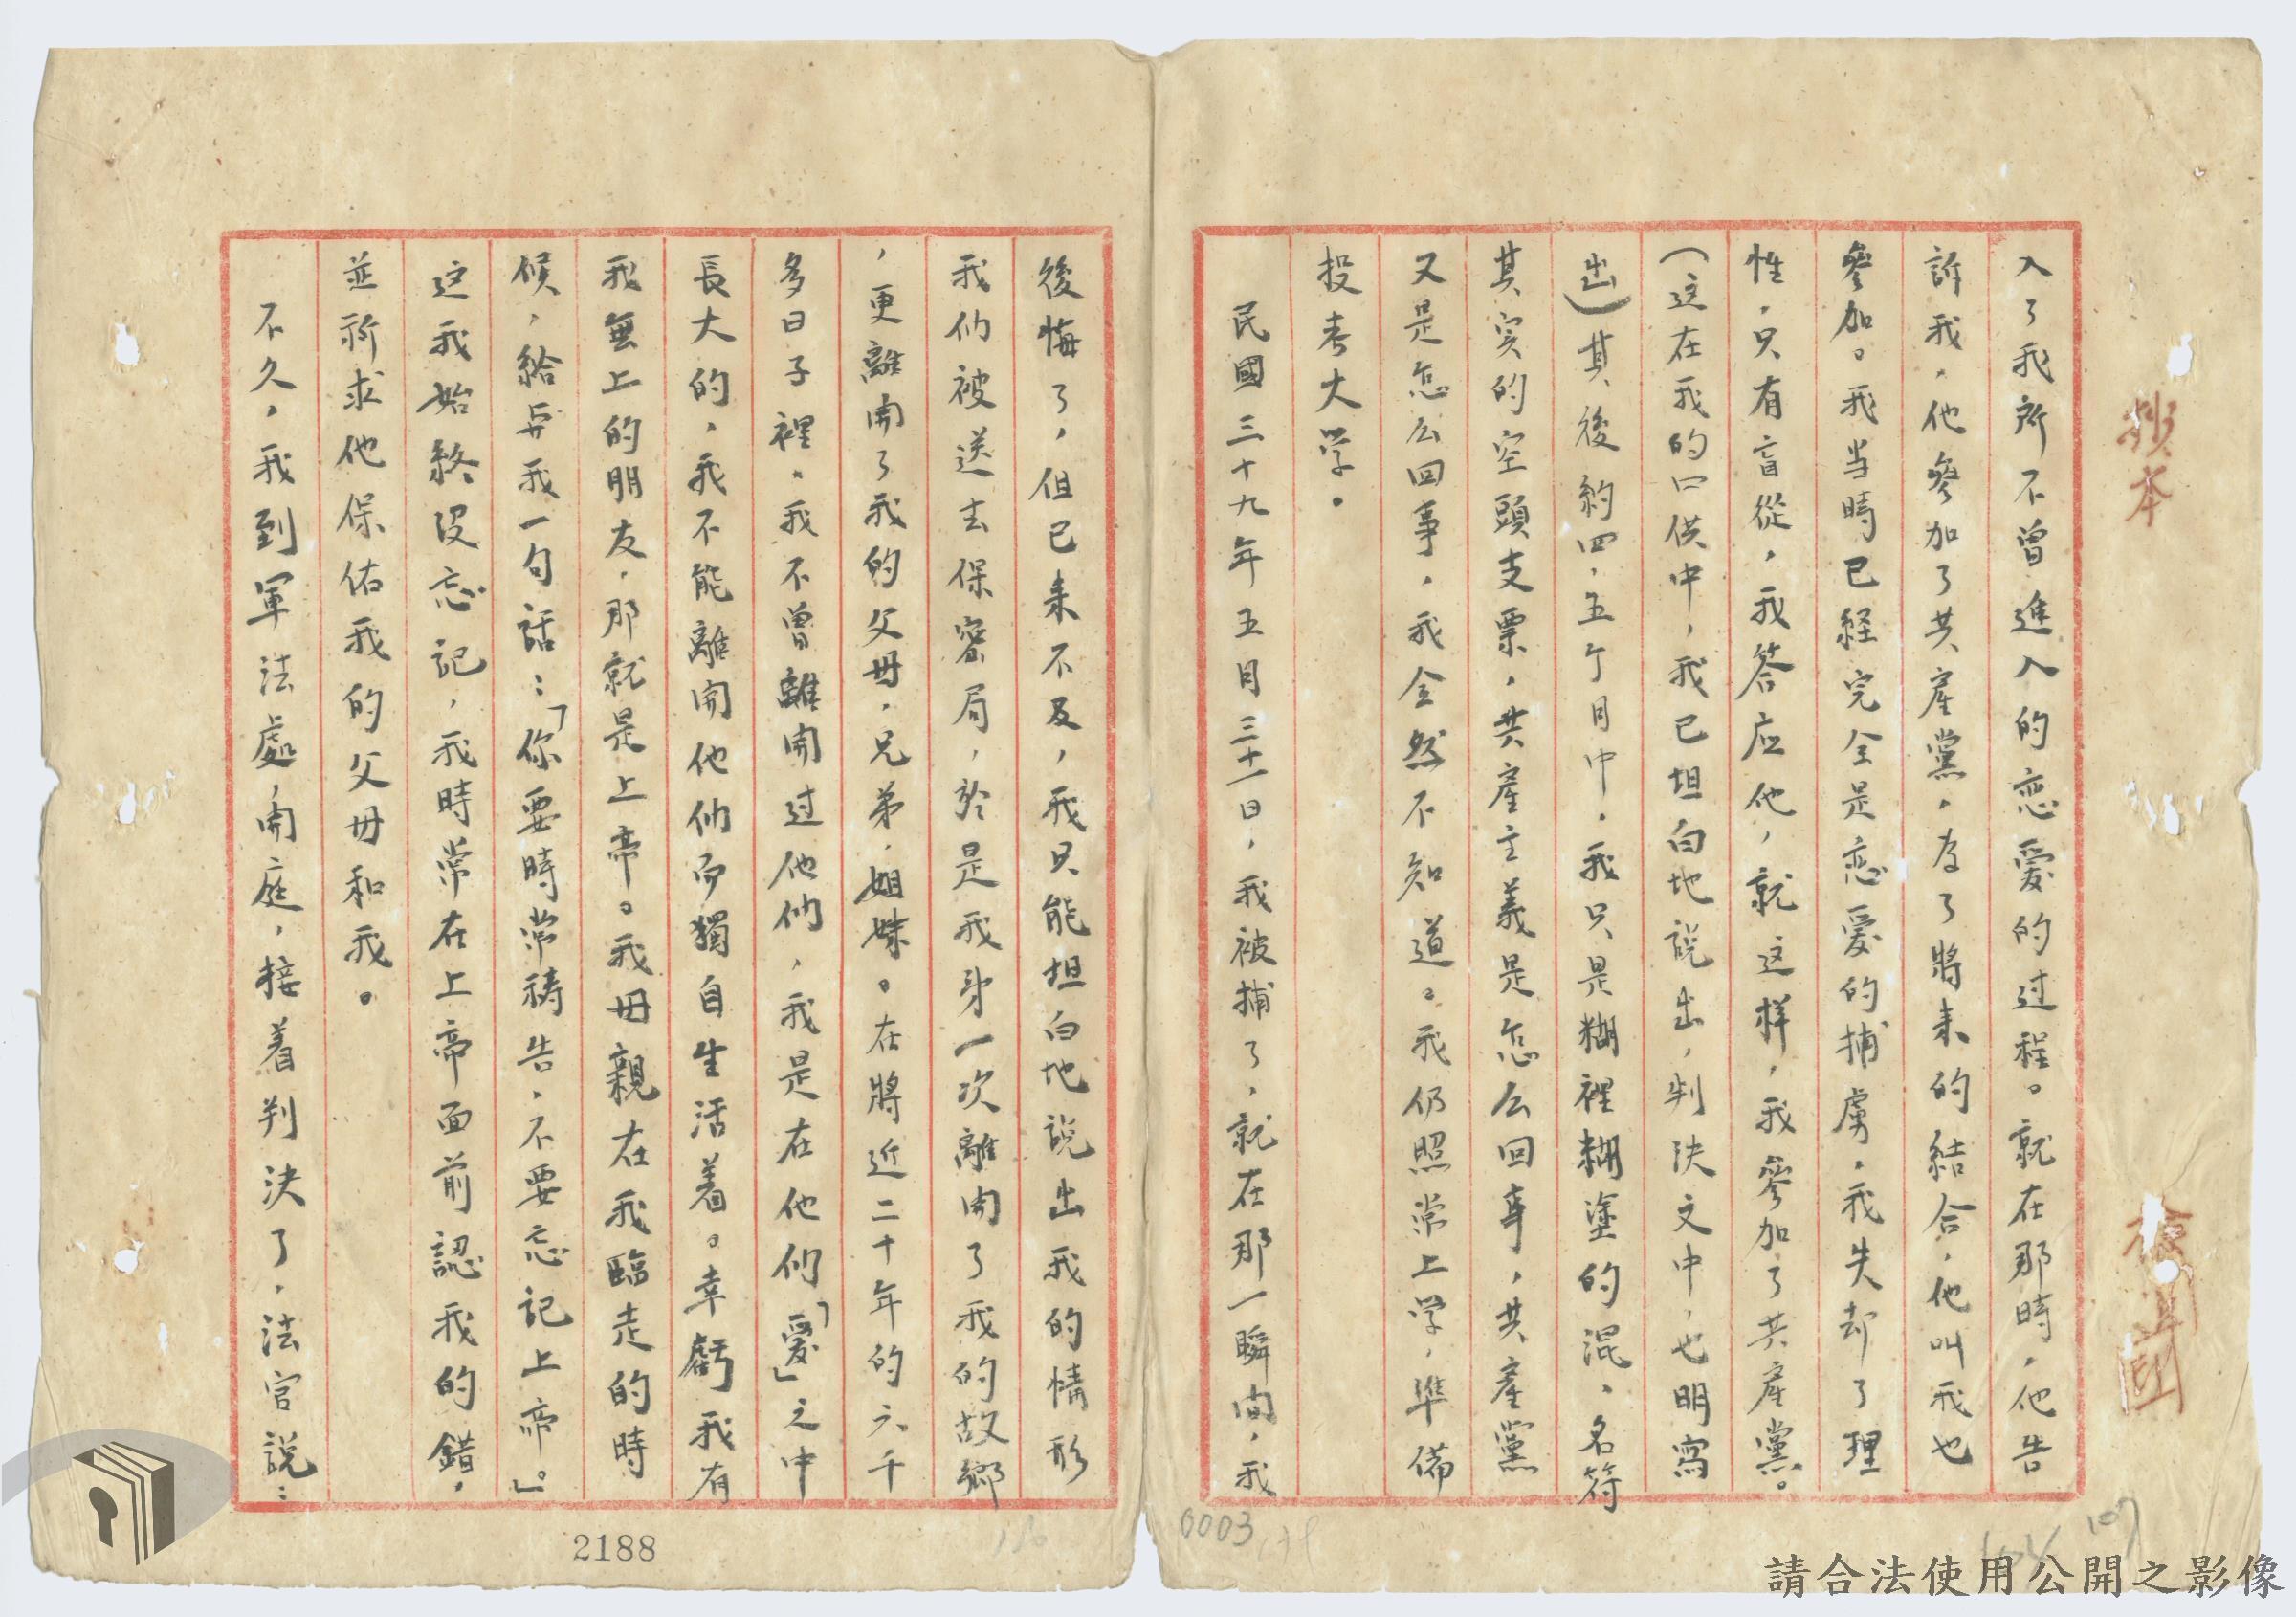 抄本
入了我所不曾進入的恋爱的过程。就在那時，他告
訴我，他參加了共産黨，为了將来的結合，他叫我也
參加。我当時已経完全是恋爱的捕虜，我失却了理
性，只有盲從，我答应他，就这样，我參加了共産黨。
（这在我的口供中，我已坦白地説出，判決文中，也明寫
出）其後約四，五个月中，我只是糊裡糊塗的混，名符
其实的空頭支票，共産主義是怎么回事，共産黨
又是怎么回事，我全然不知道。我仍照常上学，準備
投考大学。
民國三十九年五月三十一日，我被捕了，就在那一瞬间，我
後悔了，但已来不及，我只能坦白地説出我的情形
我们被送去保密局，於是我第一次離開了我的故鄉
，更離開了我的父母，兄弟，姐妹。在將近二十年的六千
多日子裡，我不曾離開过他们，我是在他们「爱」之中
長大的，我不能離開他们而獨自生活着。幸虧我有
我無上的朋友，那就是上帝。我母親在我臨走的時
候，給与我一句話：「你要時常祷告，不要忘記上帝」。
这我始終没忘記，我時常在上帝面前認我的錯，
並祈求他保佑我的父母和我。
不久，我到軍法處，開庭，接着判決了，法官説：
2188
0003
107
請合法使用公開之影像